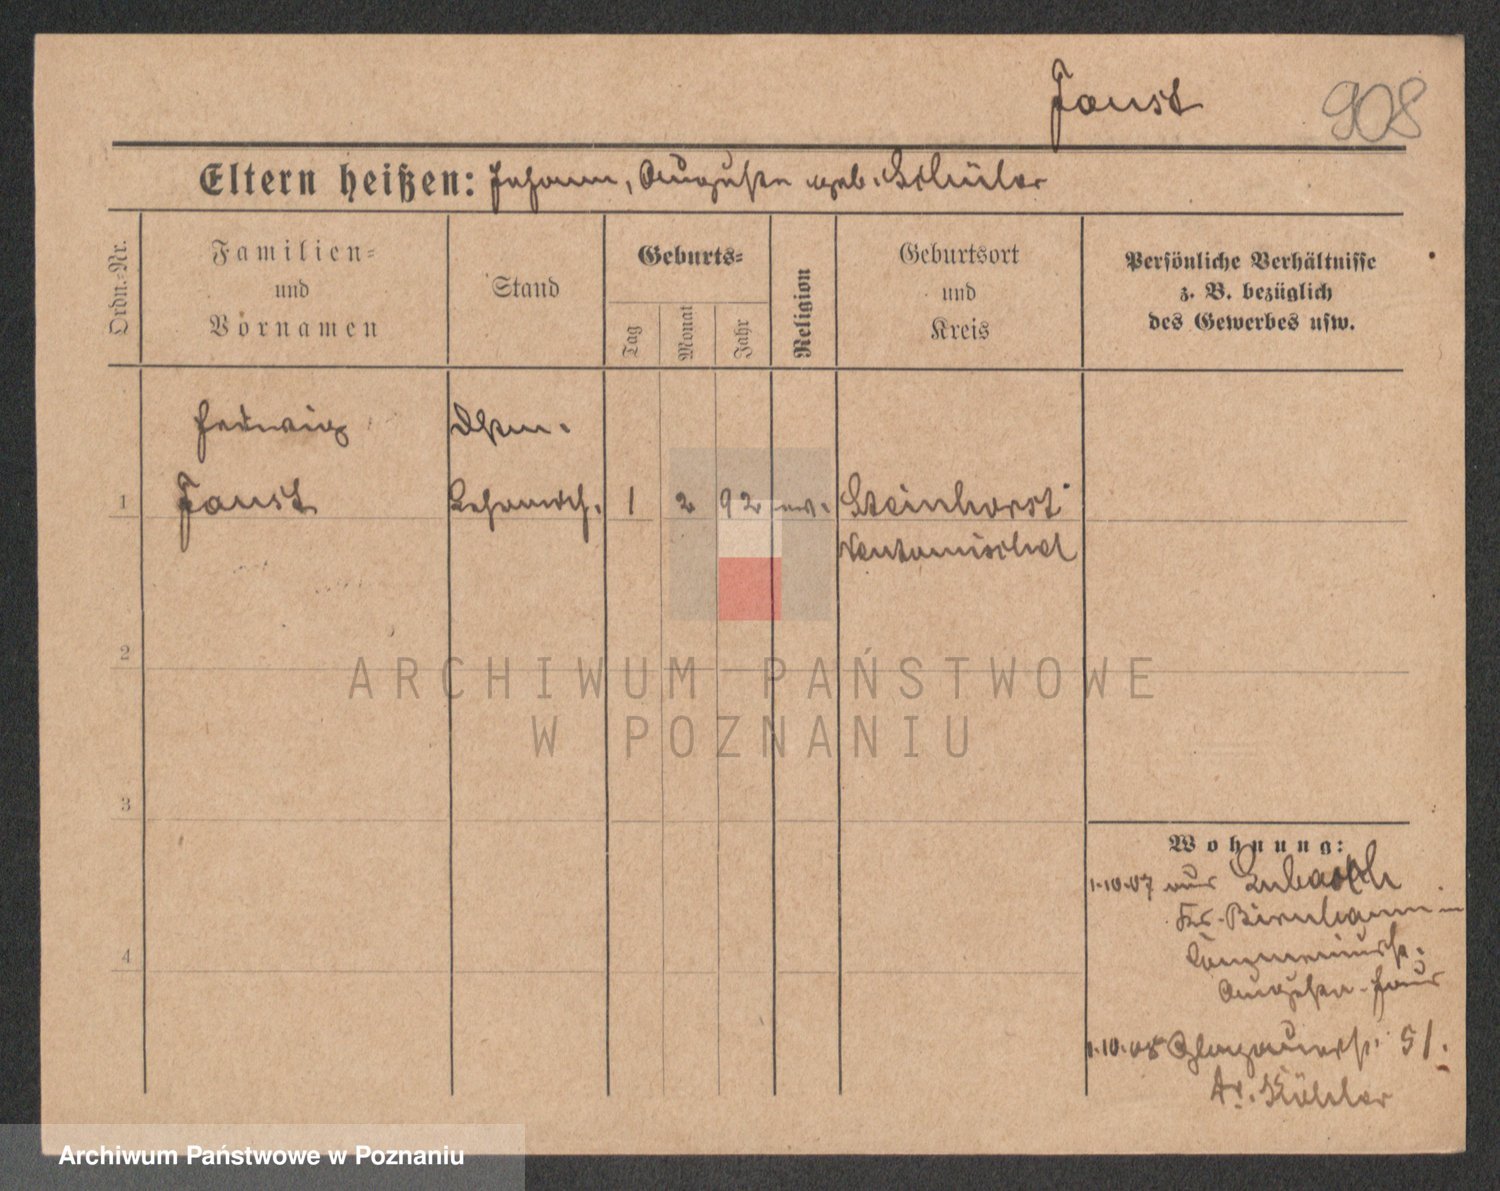 Faust
908
Eltern heißen: Johann, Auguste geb. Schüler
Ordn.=Nr.
Familien=
und
Vornamen
Stand
Geburts=
Tag
Monat
Jahr
Religion
Geburtsort
und
Kreis
Persönliche Verhältnisse
z. B. bezüglich
des Gewerbes usw.
Hedwig
1 Faust 1 2 92 ev. Steinhorst
Neutomischel
2
3
4
Wohnung:
1.10.07 aus
Kr. Birnbaum in
Augusta-Haus
1.10.08 Glogauerstr. 51.
Köhler
ARCHIWUM PAŃSTWOWE
W POZNANIU
Archiwum Państwowe w Poznaniu